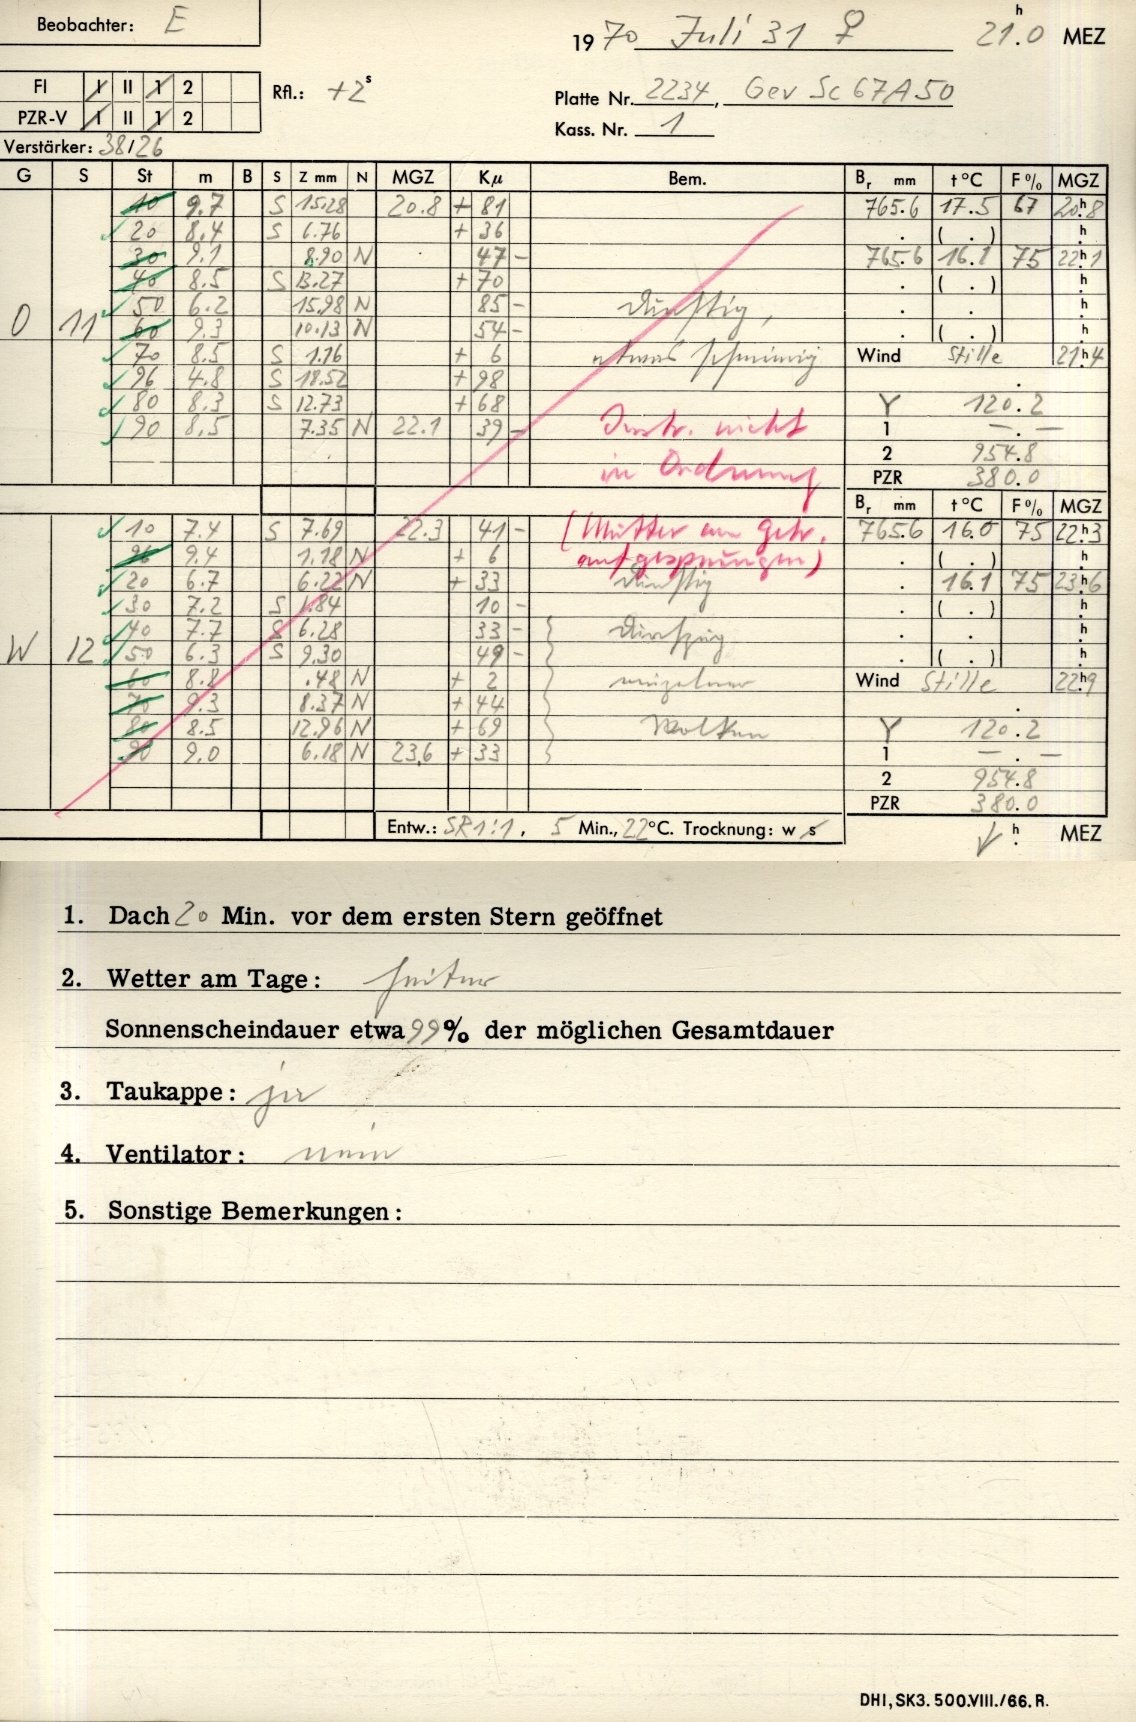 Beobachter: E
1970 Juli 31 ♀ 21.0 h MEZ
FI I II 1 2 Rfl.: +2 s
Platte Nr. 2234, Gev Sc 67A50
PZR-V I II 1 2
Kass. Nr. 1
Verstärker: 38/26
G S St m B S Z mm N MGZ Kμ Bem. Br mm t °C F % MGZ
10 9.7 S 15.28 20.8 + 81 765.6 17.5 67 20h8
20 8.4 S 6.76 + 36 . ( . ) h
30 9.1 8.90 N 47 - 765.6 16.1 75 22h1
40 8.5 S 13.27 + 70 . ( . ) h
50 6.2 15.98 N 85 - dunstig, . . h
O 11 60 9.3 10.13 N 54 - . ( . ) h
70 8.5 S 1.16 + 6 etwas schmierig Wind Stille 21h4
96 4.8 S 18.52 + 98 .
80 8.3 S 12.73 + 68 Y 120.2
90 8.5 7.35 N 22.1 39 - Instr. nicht 1 — . —
in Ordnung 2 954.8
PZR 380.0
Br mm t °C F % MGZ
10 7.4 S 7.69 22.3 41 - (Mutter am Getr. 765.6 16.0 75 22h3
96 9.4 1.18 N + 6 aufgesprungen) . ( . ) h
20 6.7 6.22 N + 33 dunstig . 16.1 75 23h6
30 7.2 S 1.84 10 - . ( . ) h
40 7.7 S 6.28 33 - dunstig . . h
W 12 50 6.3 S 9.30 49 - . ( . ) h
60 8.8 .48 N + 2 einzelne Wind Stille 22h9
70 9.3 8.37 N + 44 .
80 8.5 12.96 N + 69 Wolken Y 120.2
90 9.0 6.18 N 23.6 + 33 1 — . —
2 954.8
PZR 380.0
Entw.: SR 1:1, 5 Min., 22 °C. Trocknung: w s h MEZ
1. Dach 20 Min. vor dem ersten Stern geöffnet
2. Wetter am Tage: heiter
Sonnenscheindauer etwa 99% der möglichen Gesamtdauer
3. Taukappe: ja
4. Ventilator: nein
5. Sonstige Bemerkungen:
DHI, SK3. 500.VIII./66. R.